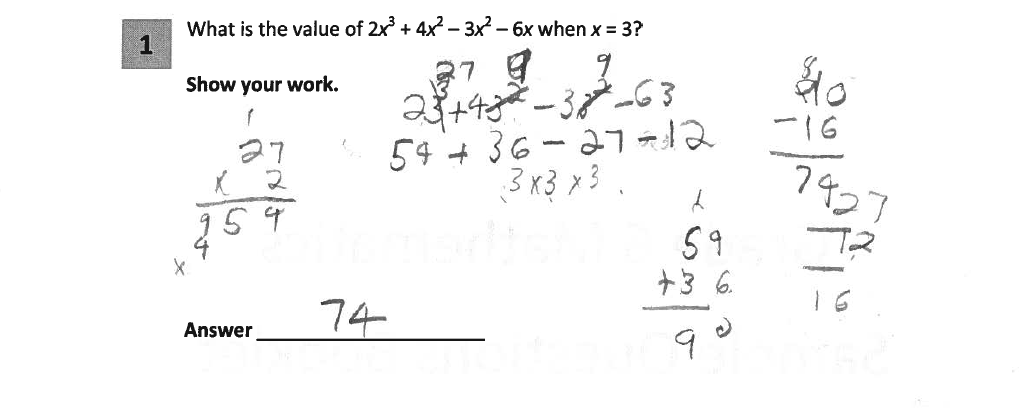 What is the value of 2x³ + 4x² – 3x² – 6x when x = 3?
1
Show your work.
27 9 9
23³+43² -3x² -63
54 + 36 - 27 - 12
3x3 x3
1
27
x 2
54
9
x 4
54
+36
90
8
90
-16
74
27
-12
16
Answer 74